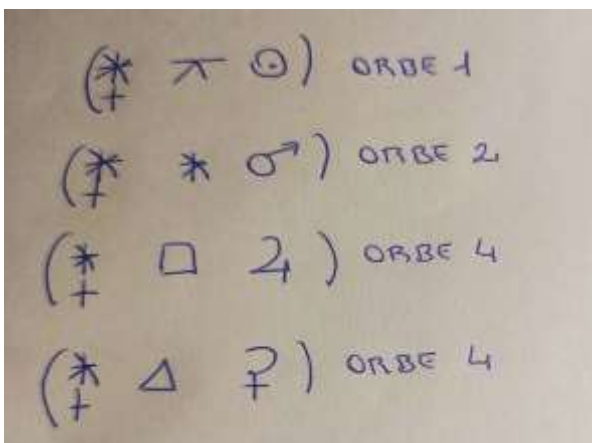 (⚴ ⚻ ☉) ORBE 1
(⚴ ⚹ ♂) ORBE 2
(⚴ □ ♃) ORBE 4
(⚴ △ ♀) ORBE 4